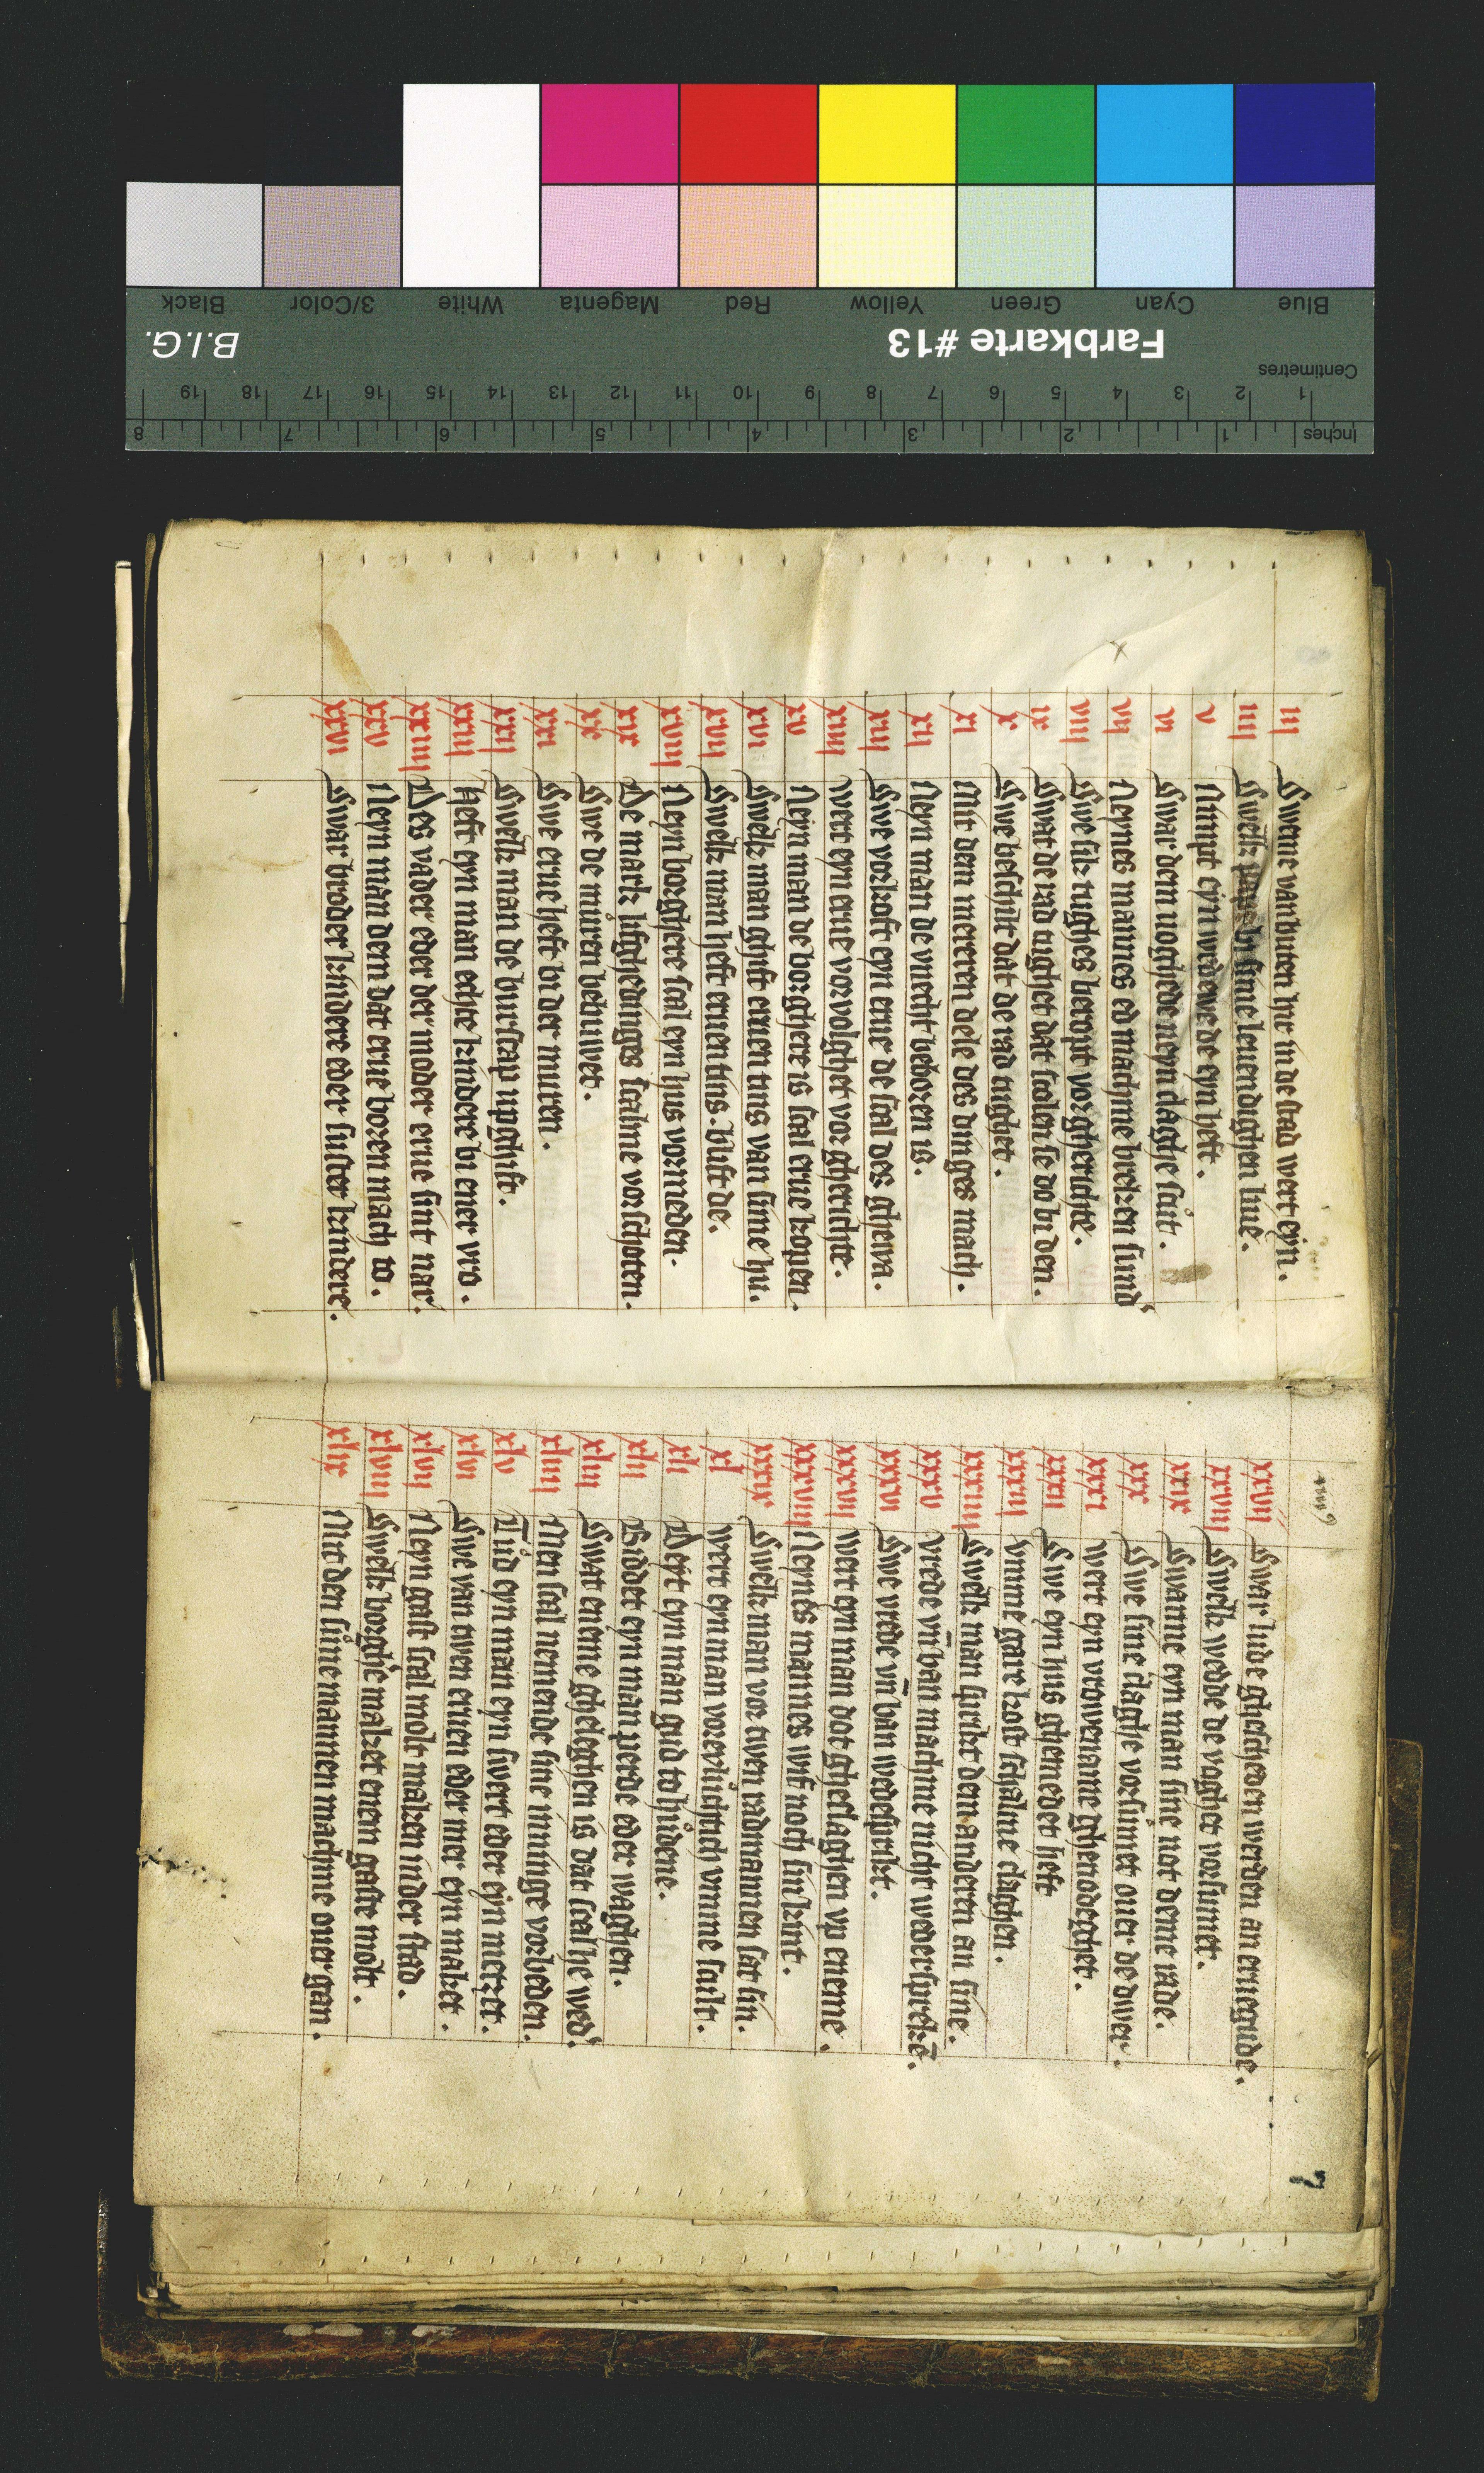 Blue Cyan Green Yellow Red Magenta White 3/Color Black
Farbkarte #13 B.I.G.
Centimetres
1 2 3 4 5 6 7 8 9 10 11 12 13 14 15 16 17 18 19
Inches 1 2 3 4 5 6 7 8
iii Sweme van buten hir in de stad wert eyn.
iiii Swelk pape bi sime leuendighen liue.
v Nimpt eyn wedewe de eyn heft.
vi Swar dem uoghede neyn claghe scut.
vii Neynes mannes ed mach me breken sund'
viii Swe sik tughes beropt vor gherichte.
ix Swat de rad tughet dat scolen se do bi den.
x Swe beschilt dat de rad tughet.
xi Mit dem mereren dele des dinges mach.
xii Neyn man de vnecht beboren is.
xiii Swe vorkoft eyn erue de scal des ghewa.
xiiii wert eyn erue vorvolghet vor gherichte.
xv Neyn man de borghere is scal erue kopen.
xvi Swelk man ghift eruen tins van sime hu.
xvii Swelk man heft eruen tins. blift de.
xviii Neyn borghere scal eyn hus vormeden.
xix De mark lifghedinges scalme vorschoten.
xx Swe de můren bebuwet.
xxi Swe erue heft bi der muren.
xxii Swelk man de burscap upghift.
xxiii heft eyn man echte kindere bi ener vro.
xxiiii Des vader eder der moder erue sint nar.
xxv Neyn man dem dat erue boren mach to.
xxvi Swar broder kindere eder suster kindere.
7
xxvii Swar lude ghescheden werden an eruegude.
xxviii Swelk wedde de vaghet vorsumet.
xxix Swanne eyn man sine not deme rade.
xxx Swe sine claghe vorsůmet ouer de dwer.
xxxi wert eyn vrowename ghenodeghet.
xxxii Swe eyn hus ghemedet heft
xxxiii vmme gare kost schalme claghen.
xxxiiii Swelk man sprikt dem anderen an sine.
xxxv vrede vn̄ ban machme nicht wedersprekē.
xxxvi Swe vrede vn̄ ban wedesprikt.
xxxvii wert eyn man dot gheslaghen vp eneme.
xxxviii Neynes mannes wif noch sin kint.
xxxix Swelk man vor twen radmannen sat sin.
xl wert eyn man vorevluchtich vmme scult.
xli Deyt eyn man gud to hůdene.
xlii Biddet eyn man perde eder waghen.
xliii Swat eneme gheleghen is dat scal he wed'.
xliiii Men scal nemende sine inninge vorbeden.
xlv Tůd eyn man eyn swert eder eyn metzet.
xlvi Swe van twen eruen eder mer eyn maket.
xlvii Neyn gast scal molt maken inder stad.
xlviii Swelk borgh'e maket enem gaste molt.
xlix Mit den sůnemannen machme ouer gan.